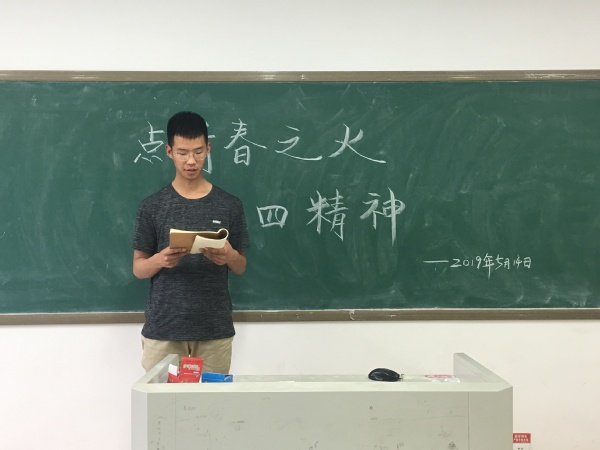 点 春之火
四精神
——2019年5月14日